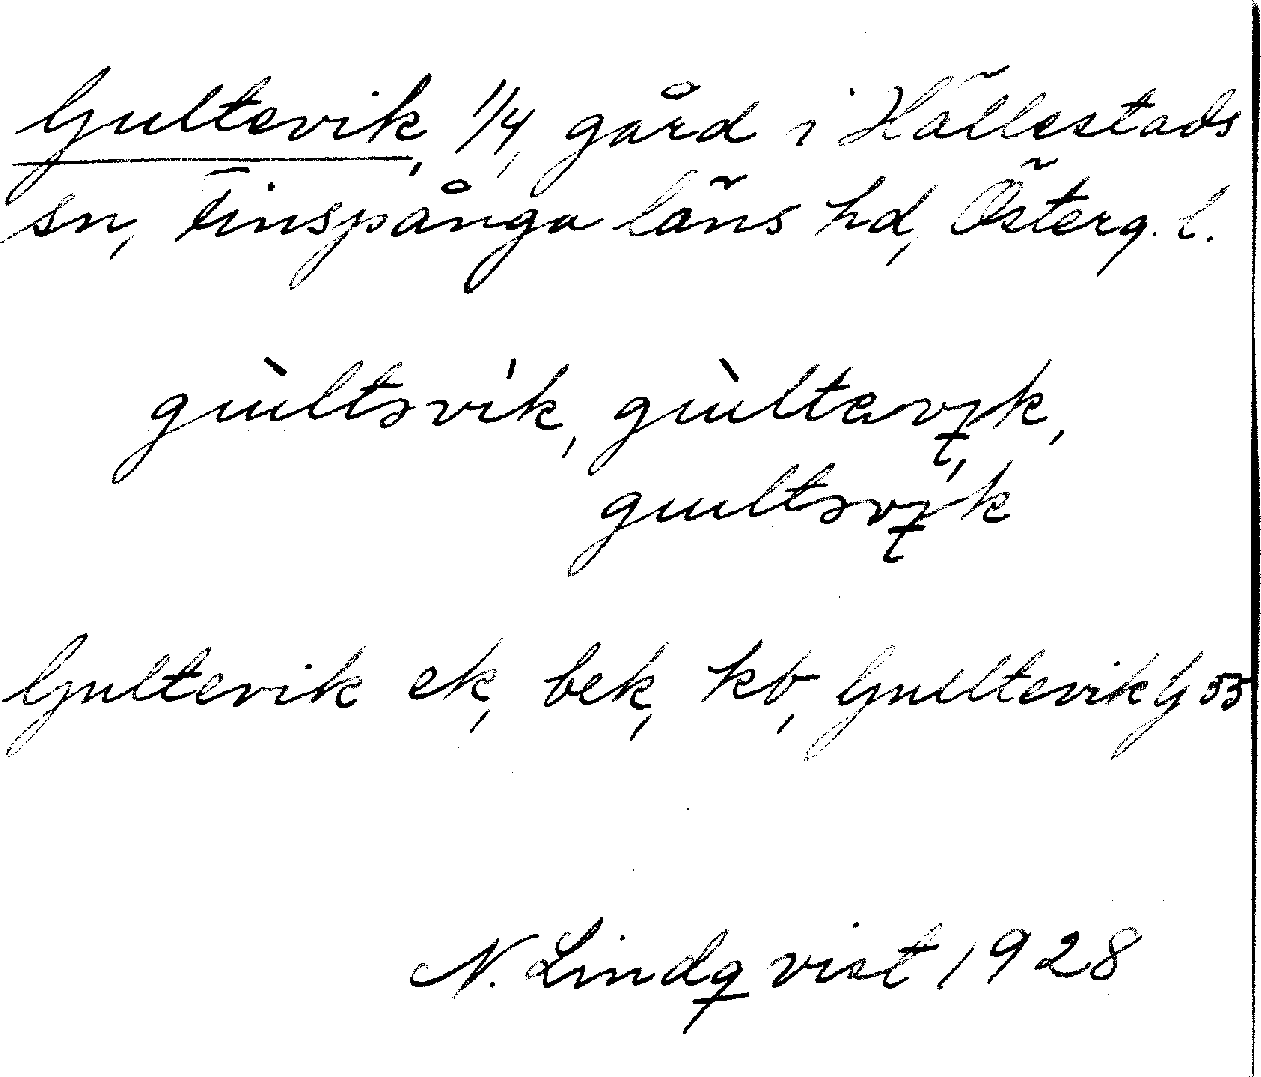 Gultevik, 1/4, gård i Hällestads
sn, Finspånga läns hd, Österg. l.
gùltəvík, gùltavik,
gultəvik
Gultevik ek, bek, kb, Gultevik G 55
N. Lindqvist 1928